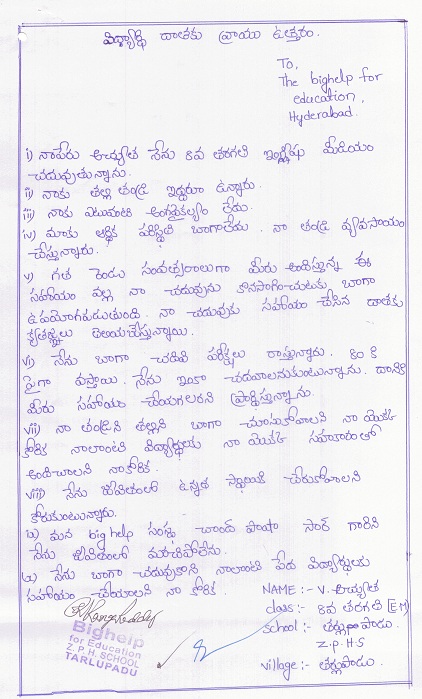 విద్యార్థి దాతకు వ్రాయు ఉత్తరం.
To,
The bighelp for
education,
Hyderabad.
i) నాపేరు అచ్యుత నేను 8వ తరగతి ఇంగ్లీషు మీడియం
చదువుతున్నాను.
ii) నాకు తల్లి తండ్రి ఇద్దరూ ఉన్నారు.
iii) నాకు ఎటువంటి అంగవైకల్యం లేదు.
iv) మాకు ఆర్థిక పరిస్థితి బాగాలేదు. నా తండ్రి వ్యవసాయం
చేస్తున్నారు.
v) గత రెండు సంవత్సరాలుగా మీరు అందిస్తున్న ఈ
సహాయం వల్ల నా చదువును కొనసాగించుటకు బాగా
ఉపయోగపడుతుంది. నా చదువుకు సహాయం చేసిన దాతకు
కృతజ్ఞతలు తెలియజేస్తున్నాయి.
vi) నేను బాగా చదివి పరీక్షలు రాస్తున్నారు. 80 కి
పైగా వస్తాయి. నేను ఇంకా చదవాలనుకుంటున్నాను. దానికి
మీరు సహాయం చేయగలరని ప్రార్థిస్తున్నాను.
vii) నా తండ్రిని తల్లిని బాగా చూసుకోవాలని నా యొక్క
కోరిక నాలాంటి విద్యార్థులకు నా యొక్క సహకారంతో
అందించాలని నాకోరిక.
viii) నేను జీవితంలో ఉన్నత స్థాయికి చేరుకోవాలని
కోరుకుంటున్నారు.
మన big help సంస్థ చాంద్ పాషా సార్ గారిని
నేను జీవితంలో మరచిపోలేను.
నేను బాగా చదువుకొని నాలాంటి పేద విద్యార్థులకు
సహాయం చేయాలని నా కోరిక.
NAME :- V. అచ్యుత
class :- 8వ తరగతి (E.M)
school :- తర్లుపాడు.
Z.P.H.S
village :- తర్లుపాడు.
Bighelp
for Education
Z. P. H. SCHOOL
TARLUPADU